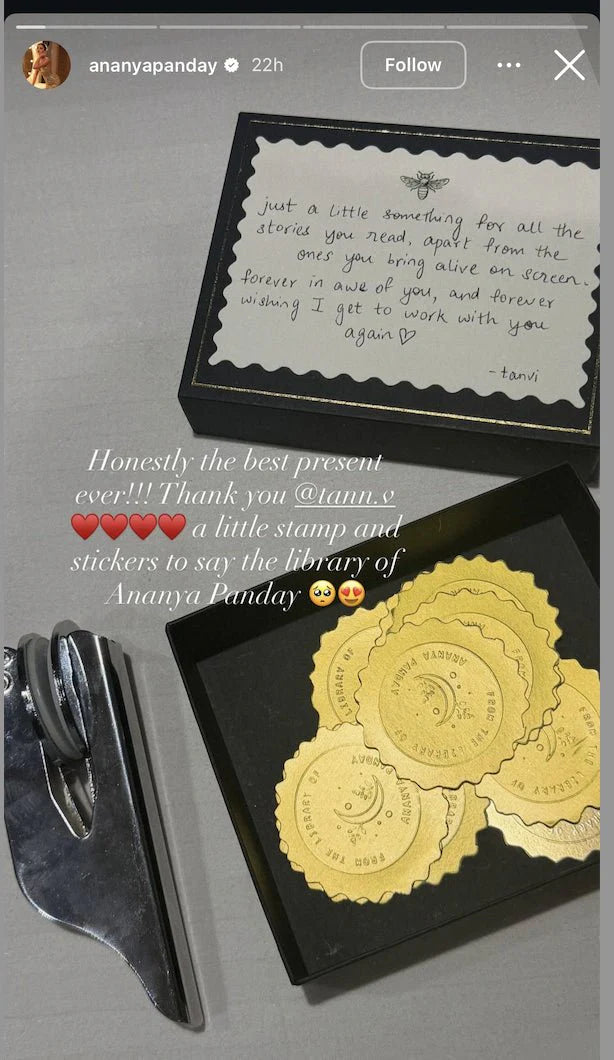 ananyapanday 22h Follow
just a little something for all the
stories you read, apart from the
ones you bring alive on screen.
forever in awe of you, and forever
wishing I get to work with you
again♡
-tanvi
Honestly the best present
ever!!! Thank you @tann.v
♥️♥️♥️♥️ a little stamp and
stickers to say the library of
Ananya Panday 🥺😍
LIBRARY OF
FROM THE LIBRARY OF
ANANYA PANDAY
FROM THE LIBRARY OF
ANANYA PANDAY
FROM THE LIBRARY OF